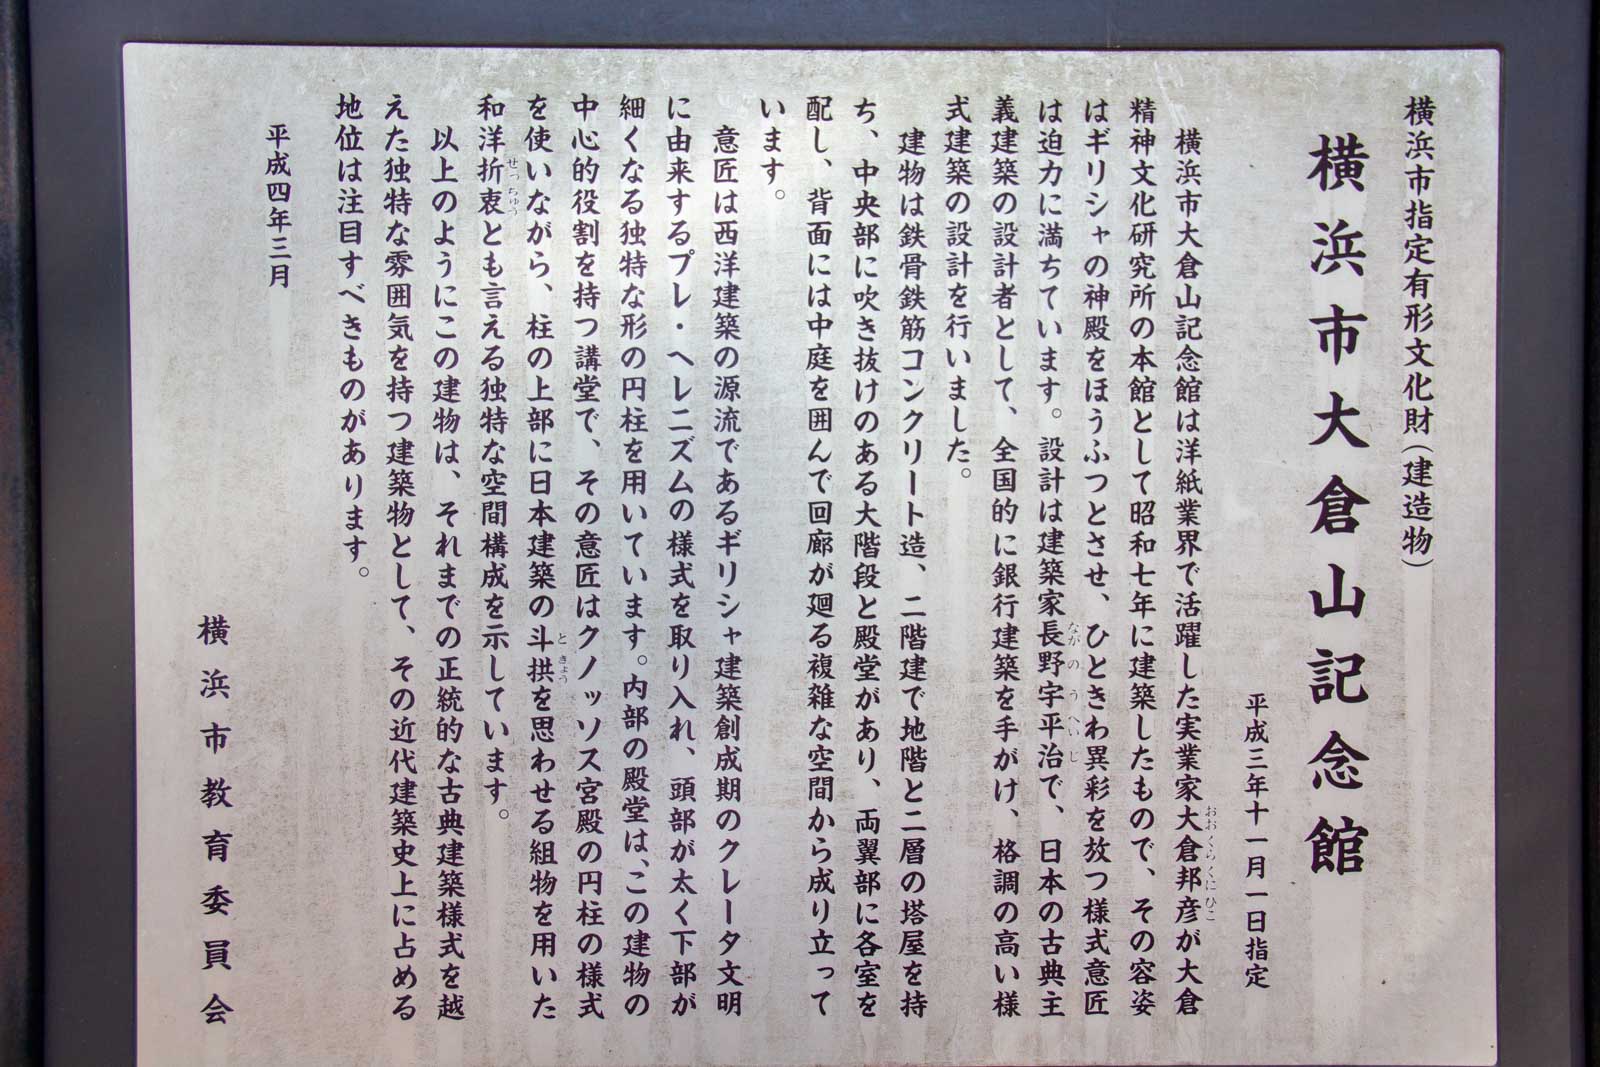 横浜市指定有形文化財(建造物)
横浜市大倉山記念館
平成三年十一月一日指定
横浜市大倉山記念館は洋紙業界で活躍した実業家大倉邦彦が大倉
おおくらくにひこ
精神文化研究所の本館として昭和七年に建築したもので、その容姿
はギリシャの神殿をほうふつとさせ、ひときわ異彩を放つ様式意匠
は迫力に満ちています。設計は建築家長野宇平治で、日本の古典主
ながのうへいじ
義建築の設計者として、全国的に銀行建築を手がけ、格調の高い様
式建築の設計を行いました。
建物は鉄骨鉄筋コンクリート造、二階建で地階と二層の塔屋を持
ち、中央部に吹き抜けのある大階段と殿堂があり、両翼部に各室を
配し、背面には中庭を囲んで回廊が廻る複雑な空間から成り立って
います。
意匠は西洋建築の源流であるギリシャ建築創成期のクレータ文明
に由来するプレ・ヘレニズムの様式を取り入れ、頭部が太く下部が
細くなる独特な形の円柱を用いています。内部の殿堂は、この建物の
中心的役割を持つ講堂で、その意匠はクノッソス宮殿の円柱の様式
を使いながら、柱の上部に日本建築の斗拱を思わせる組物を用いた
ときょう
和洋折衷とも言える独特な空間構成を示しています。
せっちゅう
以上のようにこの建物は、それまでの正統的な古典建築様式を越
えた独特な雰囲気を持つ建築物として、その近代建築史上に占める
地位は注目すべきものがあります。
平成四年三月
横浜市教育委員会